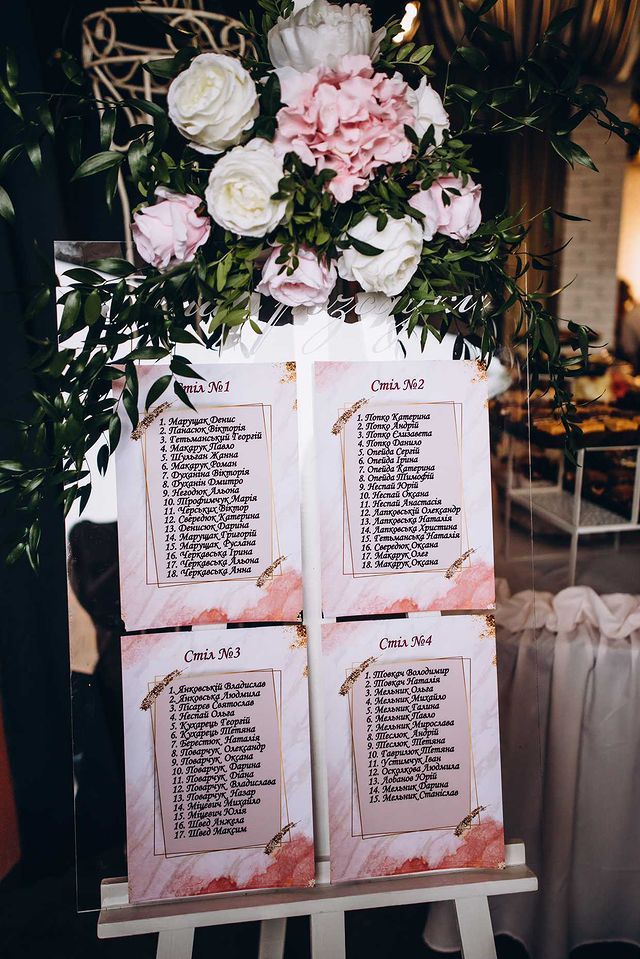 Стіл №1
1. Марущак Денис
2. Панасюк Вікторія
3. Гетьманський Георгій
4. Макарук Павло
5. Шульган Жанна
6. Макарук Роман
7. Духаніна Вікторія
8. Духанін Дмитро
9. Негодюк Альона
10. Тірофимчук Марія
11. Черських Віктор
12. Свередюк Катерина
13. Денисюк Дарина
14. Марущак Григорій
15. Марущак Руслана
16. Черкавська Ірина
17. Черкавська Альона
18. Черкавська Анна
Стіл №2
1. Попко Катерина
2. Попко Андрій
3. Попко Єлизавета
4. Попко Данило
5. Опейда Сергій
6. Опейда Ірина
7. Опейда Катерина
8. Опейда Тимофій
9. Неспай Юрій
10. Неспай Оксана
11. Неспай Анастасія
12. Лапковський Олександр
13. Лапковська Наталія
14. Лапковська Христина
15. Гетьманська Наталія
16. Свередюк Оксана
17. Макарук Олег
18. Макарук Оксана
Стіл №3
1. Янковський Владислав
2. Янковська Людмила
3. Пісарєв Святослав
4. Неспай Ольга
5. Кухарець Георгій
6. Кухарець Тетяна
7. Берестюк Наталія
8. Поварчук Олександр
9. Поварчук Оксана
10. Поварчук Дарина
11. Поварчук Діана
12. Поварчук Владислава
13. Поварчук Назар
14. Міцевич Михайло
15. Міцевич Юлія
16. Швед Анжела
17. Швед Максим
Стіл №4
1. Товкач Володимир
2. Товкач Наталія
3. Мельник Ольга
4. Мельник Михайло
5. Мельник Галина
6. Мельник Павло
7. Мельник Мирослава
8. Теслюк Андрій
9. Теслюк Тетяна
10. Гаврилюк Тетяна
11. Устимчук Іван
12. Осколкова Людмила
13. Лобанов Юрій
14. Мельник Дарина
15. Мельник Станіслав